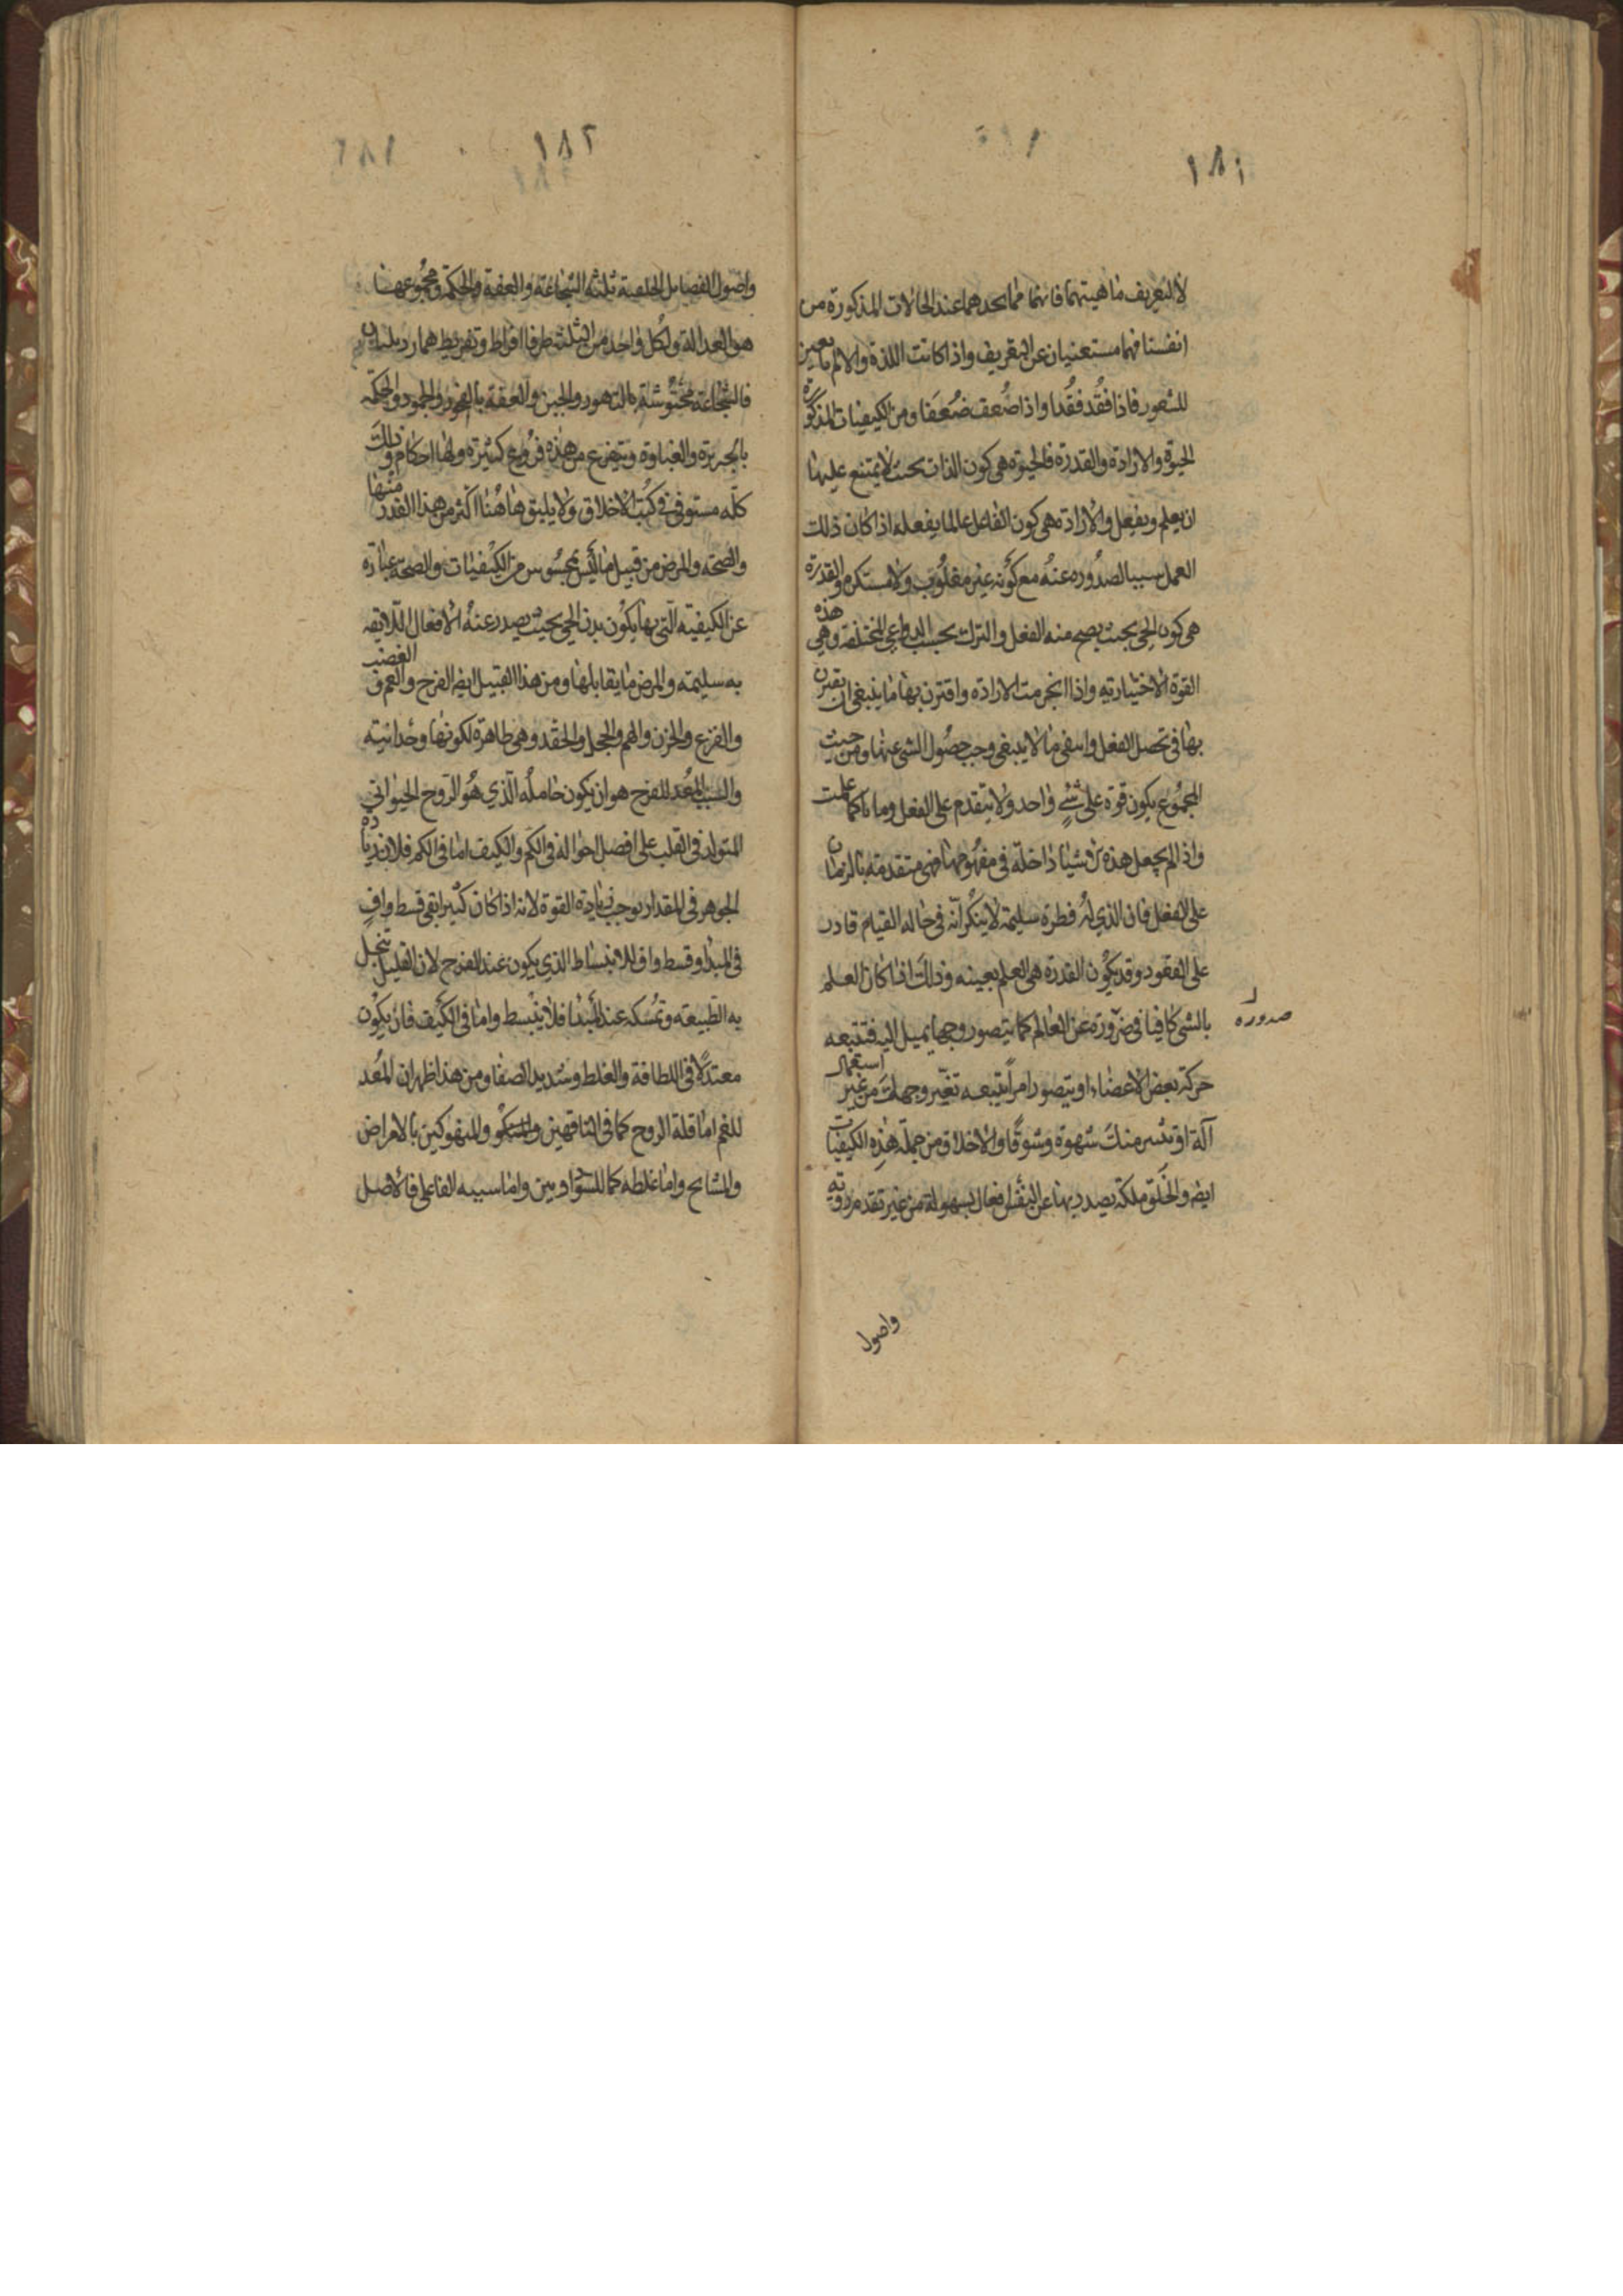 ١٨١
لا لتعريف ماهيتهما فانهما مما يجدهما عند الحالات المذكورة من
انفسنا فهما مستغنيان عن التعريف واذا كانت اللذة والالم تابعين
للشعور فاذا فقد فقدا واذا ضعف ضعفا ومن الكيفيات المذكورة
الحيوة والارادة والقدرة فالحيوة هي كون الذات بحيث لا يمتنع عليها
ان يعلم ويفعل والارادة هي كون الفاعل عالما يفعله اذا كان ذلك
العمل سببا لصدوره عنه مع كونه غير مغلوب ولا مستكره والقدرة
هي كون الحي بحيث يصح منه الفعل والترك بحسب الدواعي المختلفة وهي هذه
القوة الاختيارية واذا انجزمت الارادة واقترن بها ما ينبغي ان يقترن
بها في تحصل الفعل وانتفى ما لا ينبغي وجب حصول الشي عنها ومن حيث
المجموع يكون قوة على شئ واحد ولا يتقدم على الفعل زمانا كما علمت
واذا لم يجعل هذه الاشياء داخلة في مفهومها فهي متقدمة بالزمان
على الفعل فان الذي له فطرة سليمة لا ينكر انه في حالة القيام قادر
على القعود وقد يكون القدرة هي العلم بعينه وذلك اذا كان العلم
بالشي كافيا في ضرورة عن العالم كما يتصور وجها يميل اليه فتتبعه
صدوره
حركة بعض الاعضاء او يتصور امرا يتبعه تغير وجهك من غير استعمال
آلة او تشير منك شهوة وشوقا والاخلاق من جملة هذه الكيفيات
ايضا والخلق ملكة يصدر بها عن النفس افعال بسهولة من غير تقدم روية
واصول
١٨٢
واصول الفضايل الخلقية ثلثة الشجاعة والعفة والحكمة ومجموعها
هو العدالة ولكل واحد من الثلثة طرفا افراط وتفريط هما رذيلتان
فالشجاعة محتوشة بالتهور والجبن والعفة بالفجور والجمود والحكمة
بالجربزة والغباوة ويتفرع من هذه فروع كثيرة ولها احكام وذلك
كله مستوفى في كتب الاخلاق ولا يليق هاهنا اكثر من هذا القدر منها
والصحة والمرض من قبيل ما ليس بمحسوس من الكيفيات والصحة عبارة
عن الكيفية التي بها يكون بدن الحي بحيث يصدر عنه الافعال اللايقة
به سليمة والمرض ما يقابلها ومن هذا القبيل ايضا الفرح والغم والغضب
والفزع والحزن والهم والخجل والحقد وهي ظاهرة لكونها وجدانية
والسبب المعد للفرح هو ان يكون حامله الذي هو الروح الحيواني
المتولد في القلب على افضل احواله في الكم والكيف اما في الكم فلان زيادة
الجوهر في المقدار يوجب زيادة القوة لانه اذا كان كثيرا بقي قسط واف
في المبدا وقسط واف للانبساط الذي يكون عند الفرح لان القليل يبخل
به الطبيعة وتمسكه عند المبدا فلا ينبسط واما في الكيف فان يكون
معتدلا في اللطافة والغلظ وشديد الصفا ومن هذا ظهر ان المعد
للغم اما قلة الروح كما في الناقهين والمنهوكين بالامراض
والمشايخ واما غلظه كما للسوداويين واما سببه الفاعلي فالاصل